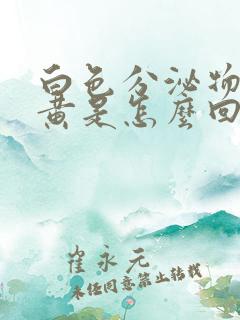 白色分泌物
黄是怎麼回
崔永元
未经同意禁止转载